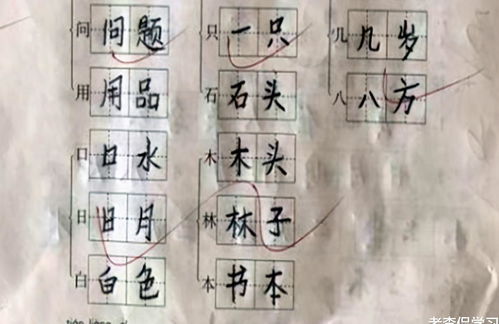 问 问题
只 一只
几 几岁
用 用品
石 石头
八 八方
口 口水
木 木头
日 日月
林 林子
白 白色
本 书本
老李侃学习